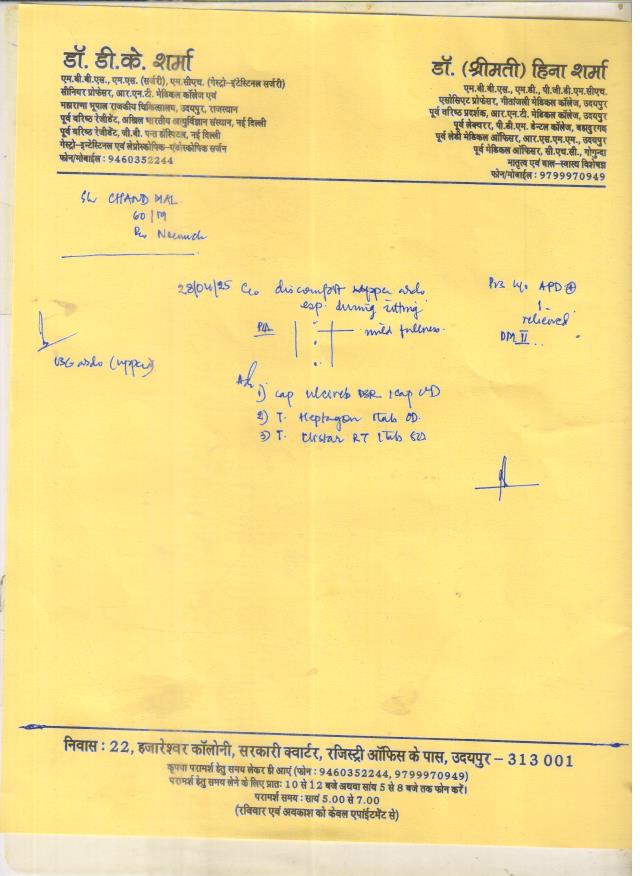 डॉ. डी.के. शर्मा
एम.बी.बी.एस., एम.एस. (सर्जरी), एम.सीएच. (गेस्ट्रो-इंटेस्टिनल सर्जरी)
सीनियर प्रोफेसर, आर.एन.टी. मेडिकल कॉलेज एवं
महाराणा भूपाल राजकीय चिकित्सालय, उदयपुर, राजस्थान
पूर्व वरिष्ठ रेजीडेंट, अखिल भारतीय आयुर्विज्ञान संस्थान, नई दिल्ली
पूर्व वरिष्ठ रेजीडेंट, जी.बी. पन्त हॉस्पिटल, नई दिल्ली
गेस्ट्रो-इन्टेस्टिनल एवं लेप्रोस्कोपिक-एंडोस्कोपिक सर्जन
फोन/मोबाईल : 9460352244
डॉ. (श्रीमती) हिना शर्मा
एम.बी.बी.एस., एम.डी., पी.जी.डी.एम.सीएच.
एसोसिएट प्रोफेसर, गीतांजली मेडिकल कॉलेज, उदयपुर
पूर्व वरिष्ठ प्रदर्शक, आर.एन.टी. मेडिकल कॉलेज, उदयपुर
पूर्व लेक्चरर, पी.डी.एम. डेन्टल कॉलेज, बहादुरगढ़
पूर्व लेडी मेडिकल ऑफिसर, आर.एस.एम.एम., उदयपुर
पूर्व मेडिकल ऑफिसर, सी.एच.सी., गोगुन्दा
मातृत्व एवं बाल-स्वास्थ्य विशेषज्ञ
फोन/मोबाईल : 9799970949
CHAND MAL
60/M
28/04/25 C/o discomfort upper abdo
esp. during sitting
P/A mild fullness.
APD +
relieved
DM II
USG abdo (upper)
Adv
1) Cap DSR 1cap OD
2) T. Heptagon 1tab OD.
3) T. RT 1tab
निवास : 22, हजारेश्वर कॉलोनी, सरकारी क्वार्टर, रजिस्ट्री ऑफिस के पास, उदयपुर – 313 001
कृपया परामर्श हेतु समय लेकर ही आएं (फोन : 9460352244, 9799970949)
परामर्श हेतु समय लेने के लिए प्रातः 10 से 12 बजे अथवा सांय 5 से 8 बजे तक फोन करें।
परामर्श समय : सायं 5.00 से 7.00
(रविवार एवं अवकाश को केवल एपॉईंटमेंट से)